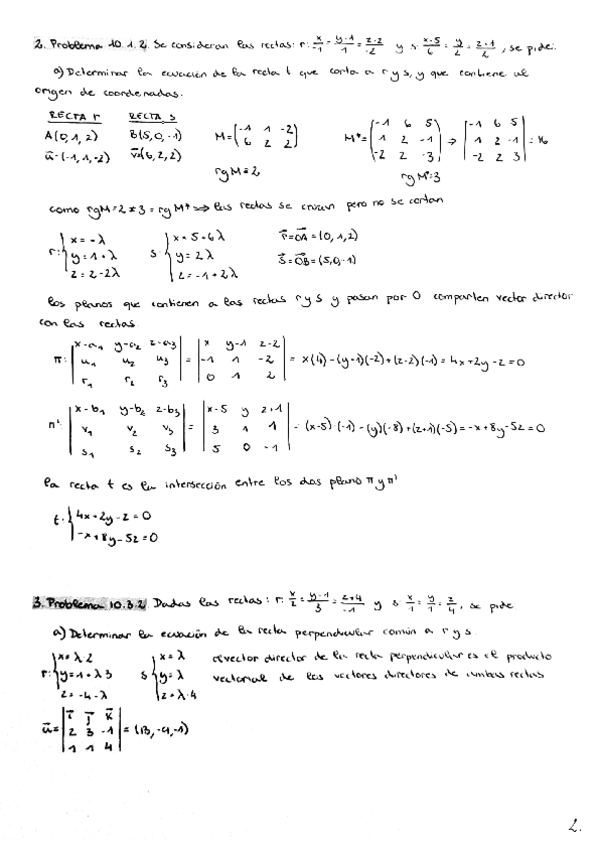 2. Problema 10.1.2. Se consideran las rectas: r: x/-1 = y-1/1 = z-2/-2 y s: x-5/6 = y/2 = z+1/2, se pide:
a) Determinar la ecuación de la recta t que corta a r y s, y que contiene al
origen de coordenadas.
RECTA r RECTA s
A(0,1,2) B(5,0,-1)
u=(-1,1,-2) v=(6,2,2)
M=(-1 1 -2
6 2 2)
rgM=2
M*=(-1 6 5
1 2 -1
-2 2 -3) => |-1 6 5
1 2 -1
-2 2 3| = 16
rgM*=3
como rgM=2≠3=rgM* => las rectas se cruzan pero no se cortan
r: {x=-λ
y=1+λ
z=2-2λ
s {x=5+6λ
y=2λ
z=-1+2λ
r=OA=(0,1,2)
s=OB=(5,0,-1)
los planos que contienen a las rectas r y s y pasan por O comparten vector director
con las rectas
π: |x-a₁ y-a₂ z-a₃
u₁ u₂ u₃
r₁ r₂ r₃| = |x y-1 z-2
-1 1 -2
0 1 2| = x(4)-(y-1)(-2)+(z-2)(-1)=4x+2y-z=0
π': |x-b₁ y-b₂ z-b₃
v₁ v₂ v₃
s₁ s₂ s₃| = |x-5 y z+1
3 1 1
5 0 -1| = (x-5)·(-1)-(y)(-8)+(z+1)(-5)=-x+8y-5z=0
la recta t es la intersección entre los dos plano π y π'
t: {4x+2y-z=0
-x+8y-5z=0
3. Problema 10.3.2. Dadas las rectas: r: x/2 = y-1/3 = z+4/-1 y s: x/1 = y/1 = z/4, se pide
a) Determinar la ecuación de la recta perpendicular común a r y s.
r: {x=λ2
y=1+λ3
z=-4-λ
s {x=λ
y=λ
z=λ·4
el vector director de la recta perpendicular es el producto
vectorial de los vectores directores de ambas rectas
u=|i j k
2 3 -1
1 1 4| = (13,-9,-1)
2.